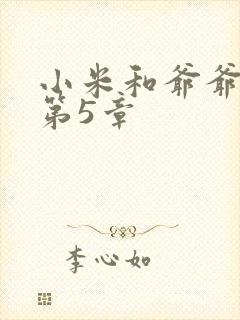 小米和爷爷
第5章
李心如